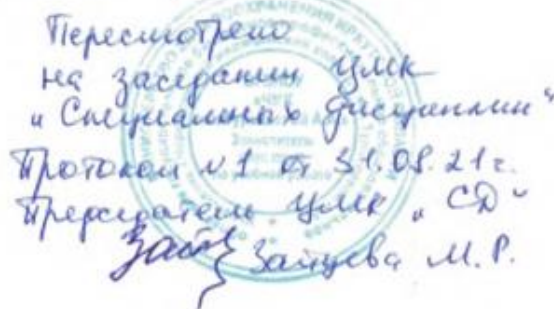 Пересмотрено
на заседании ЦМК
„Специальных дисциплин“
Протокол №1 от 31.08.21г.
Председатель ЦМК „СД“
Зайцева М.Р.